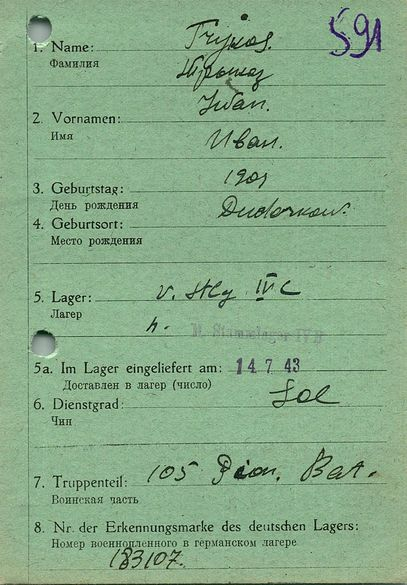 591
1. Name: Tryjkos.
Фамилия
2. Vornamen: Iwan.
Имя Иван.
3. Geburtstag: 1901
День рождения
4. Geburtsort: Dudorkow.
Место рождения
5. Lager: v. Stlg IV C
Лагер
h. M. Stammlager IV B
5a. Im Lager eingeliefert am: 14 7 43
Доставлен в лагер (число)
6. Dienstgrad: Sol
Чин
7. Truppenteil: 105 Pion. Bat.
Воинская часть
8. Nr. der Erkennungsmarke des deutschen Lagers:
Номер военнопленного в германском лагере
183107.